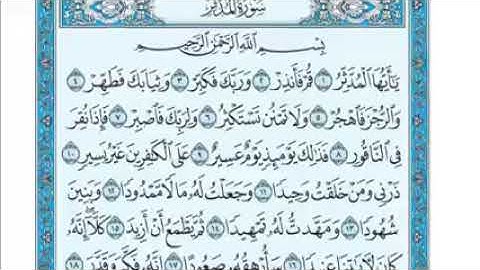 سُورَةُ المُدَّثِّر
بِسْمِ اللَّهِ الرَّحْمَٰنِ الرَّحِيمِ
يَا أَيُّهَا الْمُدَّثِّرُ ١ قُمْ فَأَنذِرْ ٢ وَرَبَّكَ فَكَبِّرْ ٣ وَثِيَابَكَ فَطَهِّرْ ٤
وَالرُّجْزَ فَاهْجُرْ ٥ وَلَا تَمْنُن تَسْتَكْثِرُ ٦ وَلِرَبِّكَ فَاصْبِرْ ٧ فَإِذَا نُقِرَ
فِي النَّاقُورِ ٨ فَذَٰلِكَ يَوْمَئِذٍ يَوْمٌ عَسِيرٌ ٩ عَلَى الْكَافِرِينَ غَيْرُ يَسِيرٍ ١٠
ذَرْنِي وَمَنْ خَلَقْتُ وَحِيدًا ١١ وَجَعَلْتُ لَهُ مَالًا مَّمْدُودًا ١٢ وَبَنِينَ
شُهُودًا ١٣ وَمَهَّدتُّ لَهُ تَمْهِيدًا ١٤ ثُمَّ يَطْمَعُ أَنْ أَزِيدَ ١٥ كَلَّا إِنَّهُ
كَانَ لِآيَاتِنَا عَنِيدًا ١٦ سَأُرْهِقُهُ صَعُودًا ١٧ إِنَّهُ فَكَّرَ وَقَدَّرَ ١٨